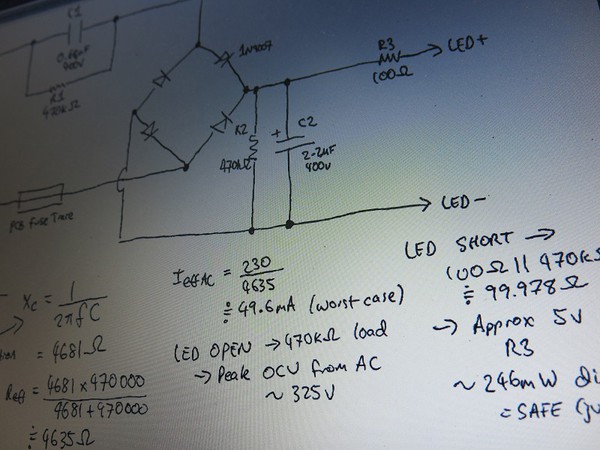 C1
400V
R1
470kΩ
1N4007
R3
100Ω
LED+
R2
470kΩ
+
C2
2-2uF
400v
PCB Fuse Trace
LED-
Xc = 1
2πfC
= 4681Ω
Reff = 4681 x 470000
4681 + 470000
≑ 4635Ω
IeffAC = 230
4635
≑ 49.6mA (worst case)
LED OPEN → 470kΩ load
→ Peak OCV from AC
~ 325V
LED SHORT →
100Ω || 470k
≑ 99.978Ω
→ Approx 5v
R3
~ 246mW
= SAFE